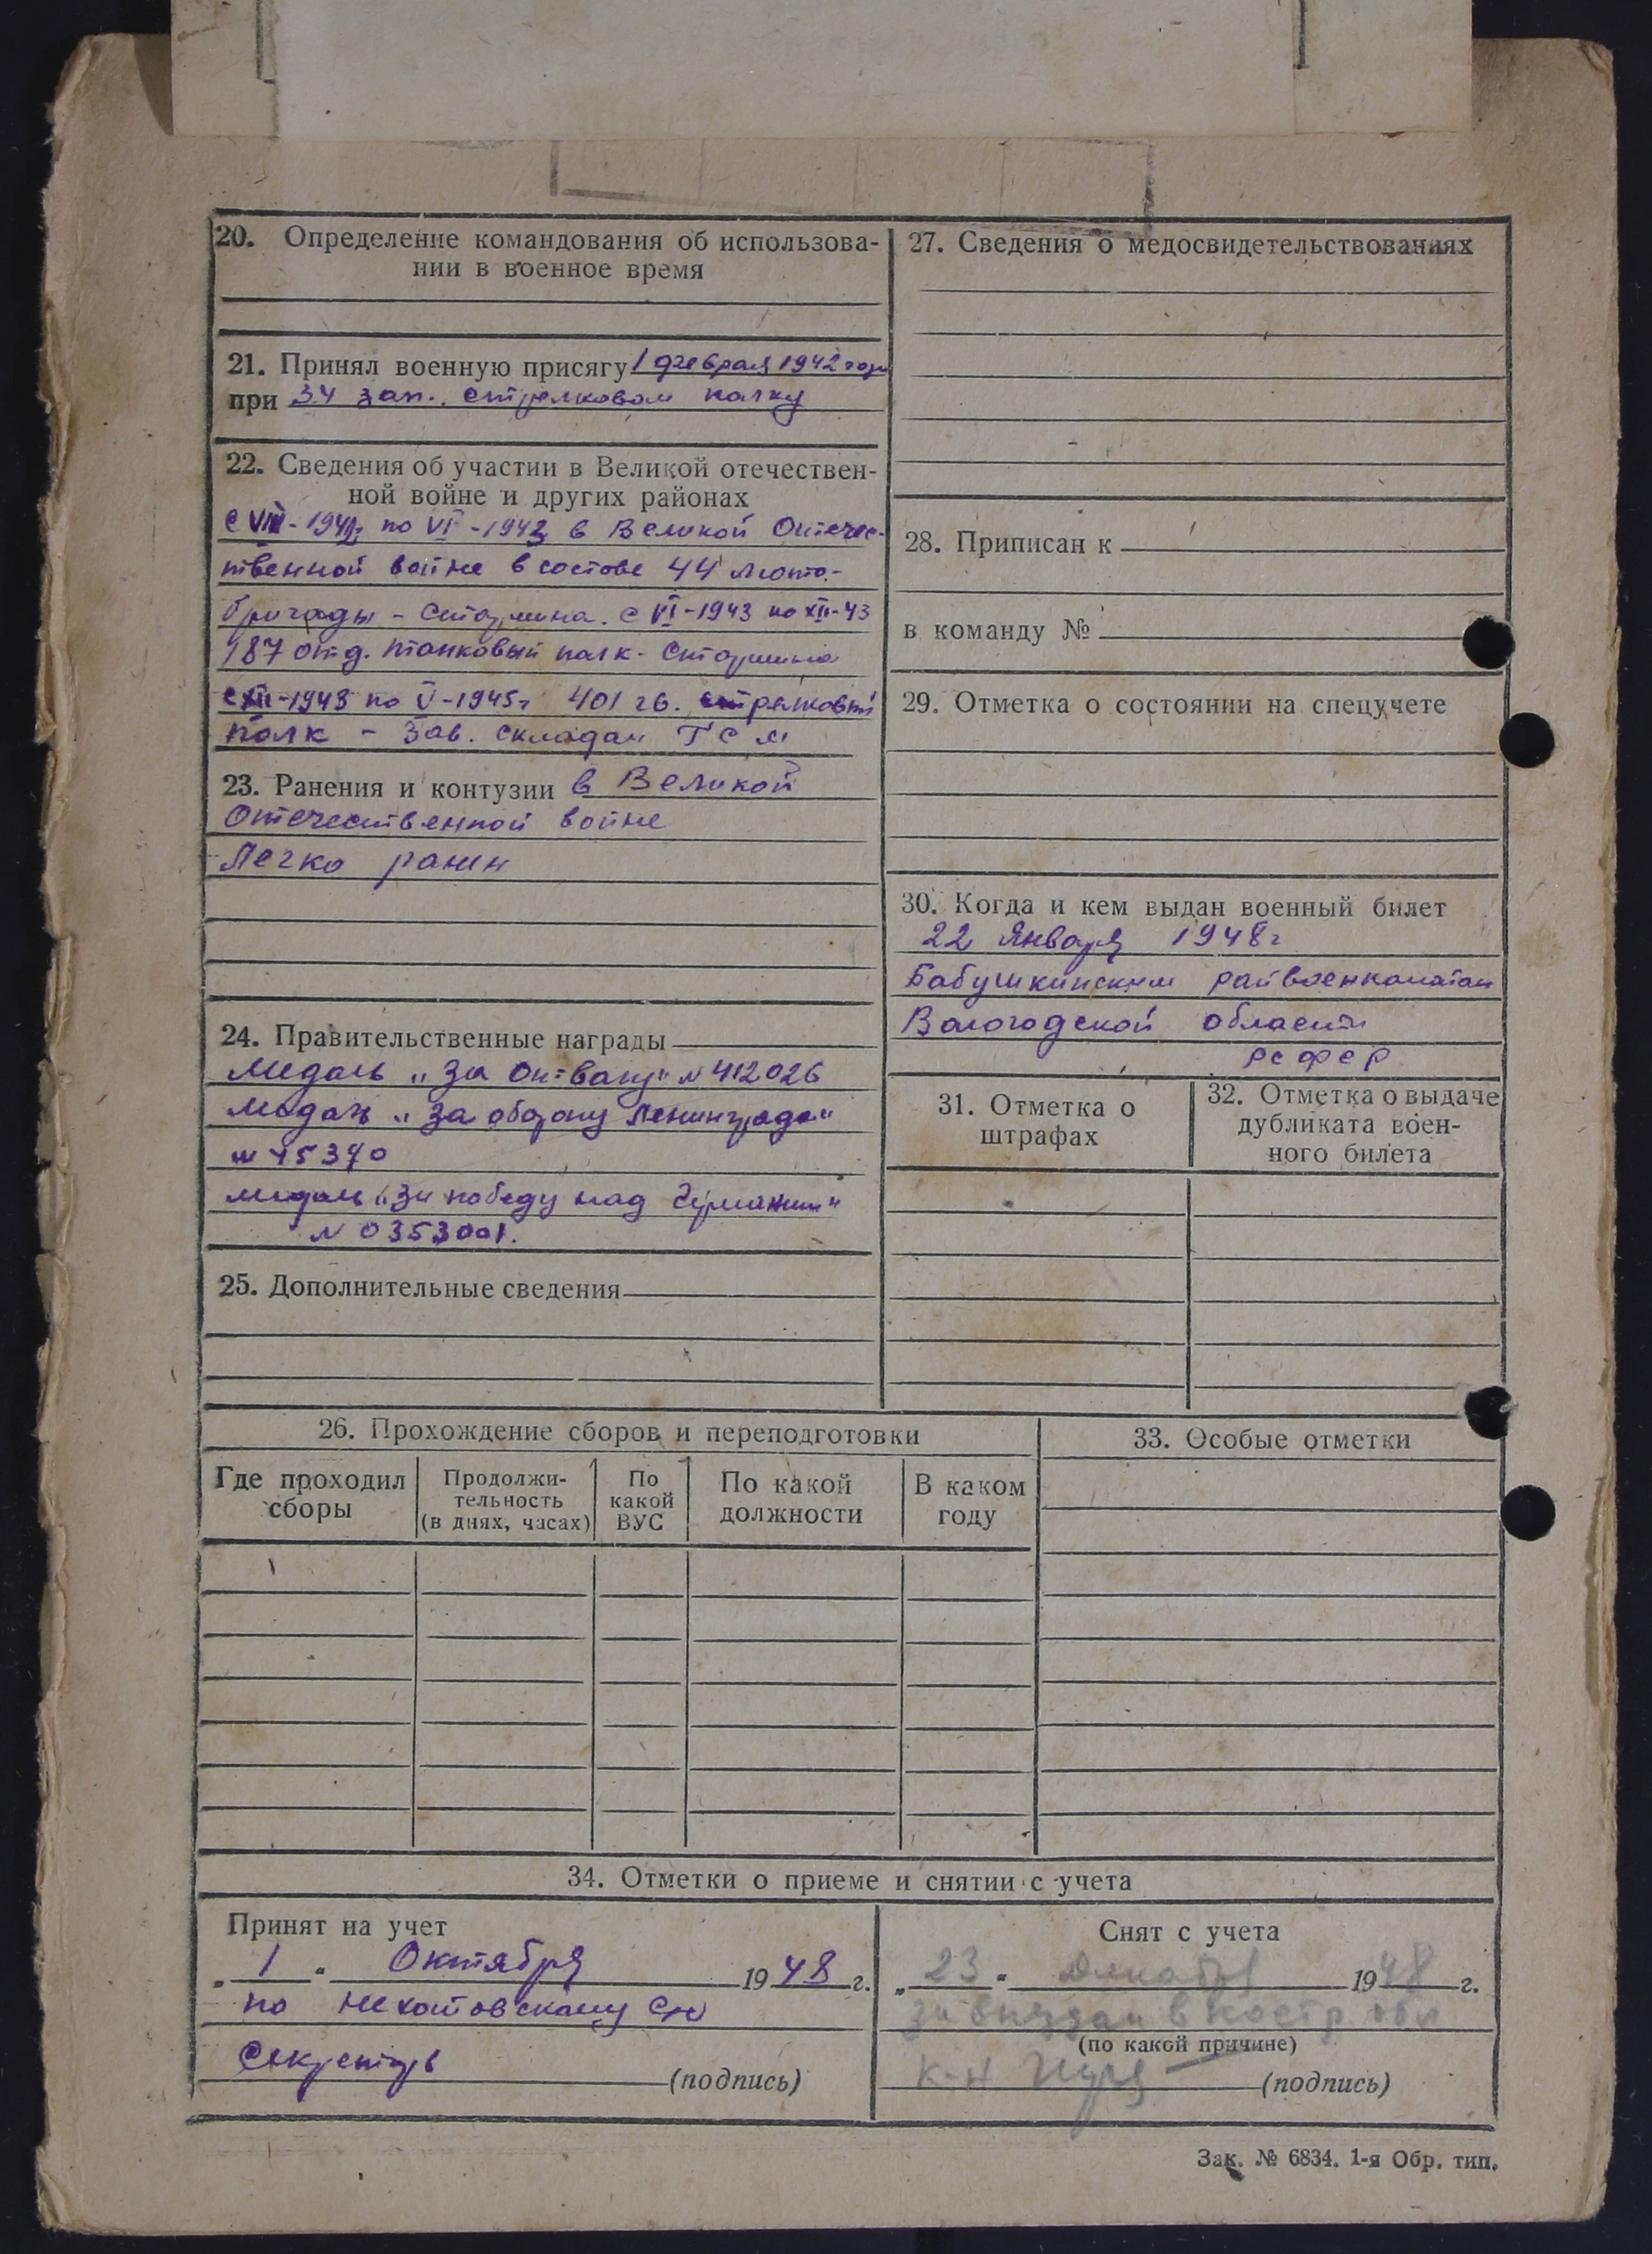 20. Определение командования об использова-
нии в военное время
21. Принял военную присягу 1 февраля 1942 года
при 34 зап. стрелковом полку
22. Сведения об участии в Великой отечествен-
ной войне и других районах
с VIII-1942 по VI-1943 в Великой Отечес-
твенной войне в составе 44 мото-
бригады - Старшина. с VI-1943 по XII-43
187 отд. танковый полк - Старшина
с XII-1943 по V-1945г 401 гв. стрелковый
полк - Зав. складом ГСМ
23. Ранения и контузии в Великой
Отечественной войне
Легко ранен
24. Правительственные награды
Медаль „За отвагу" № 412026
Медаль „За оборону Ленинграда"
медаль „За победу над Германии"
№ 0353001.
25. Дополнительные сведения
27. Сведения о медосвидетельствованиях
28. Приписан к
в команду №
29. Отметка о состоянии на спецучете
30. Когда и кем выдан военный билет
22 Января 1948г
Бабушкинским райвоенкоматом
Вологодской области
РСФСР
31. Отметка о
штрафах
32. Отметка о выдаче
дубликата воен-
ного билета
26. Прохождение сборов и переподготовки
Где проходил
сборы
Продолжи-
тельность
(в днях, часах)
По
какой
ВУС
По какой
должности
В каком
году
33. Особые отметки
34. Отметки о приеме и снятии с учета
Принят на учет
„ 1 " Октября 1948 г.
по
Секретарь (подпись)
Снят с учета
„ 23 " Декабря 1948 г.
за выездом в Костр. обл
(по какой причине)
к-н (подпись)
Зак. № 6834. 1-я Обр. тип.